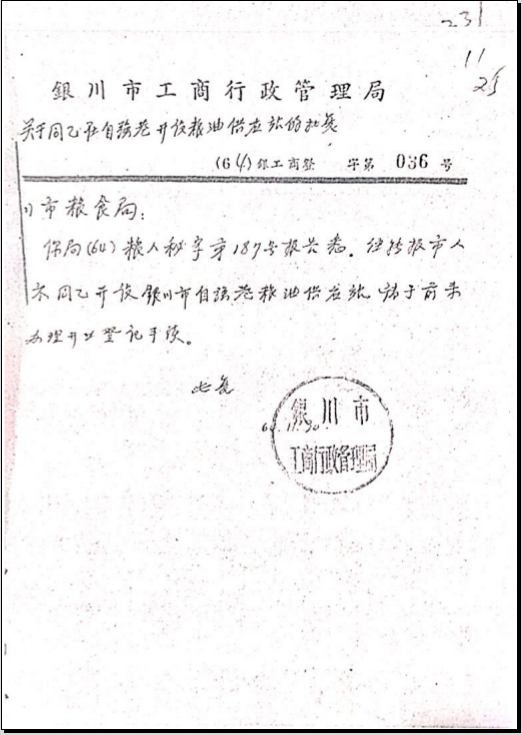 231
11
25
銀川市工商行政管理局
关于同乙在自强巷开设粮油供应站的批复
(64)銀工商登 字第 036 号
川市粮食局:
你局(64)粮人秘字第187号报告悉。经转报市人
木同乙开设银川市自强巷粮油供应站,请于前来
办理开业登记手续。
此复
銀川市
工商行政管理局